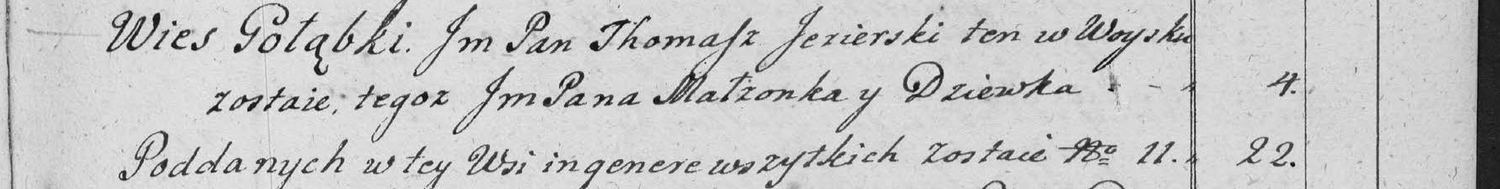 Wies Gołąbki. Jm Pan Thomasz Jezierski ten w Woysku
zostaie, tegoz Jm Pana Małzonka y Dziewka . - " 4.
Poddanych w tey Wsi in genere wszytkich zostaie No 11. " 22.